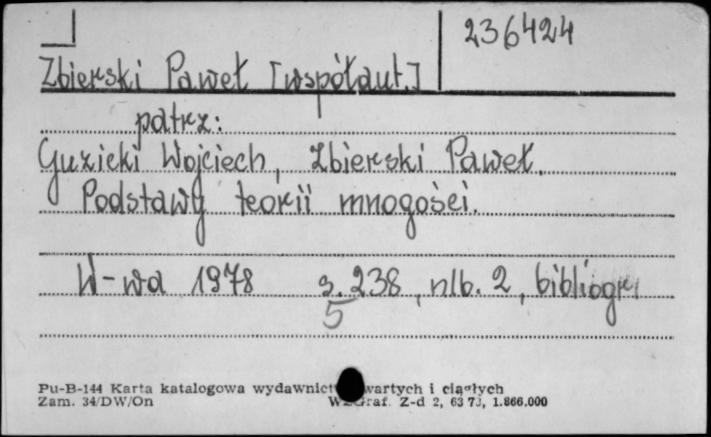 236424
Zbierski Paweł [współaut.]
patrz:
Guzicki Wojciech, Zbierski Paweł.
Podstawy teorii mnogości.
W-wa 1978 s. 238, nlb. 2, bibliogr.
5
Pu-B-144 Karta katalogowa wydawnict wartych i ciągłych
Zam. 34/DW/On Graf. Z-d 2, 63 73, 1.866.000